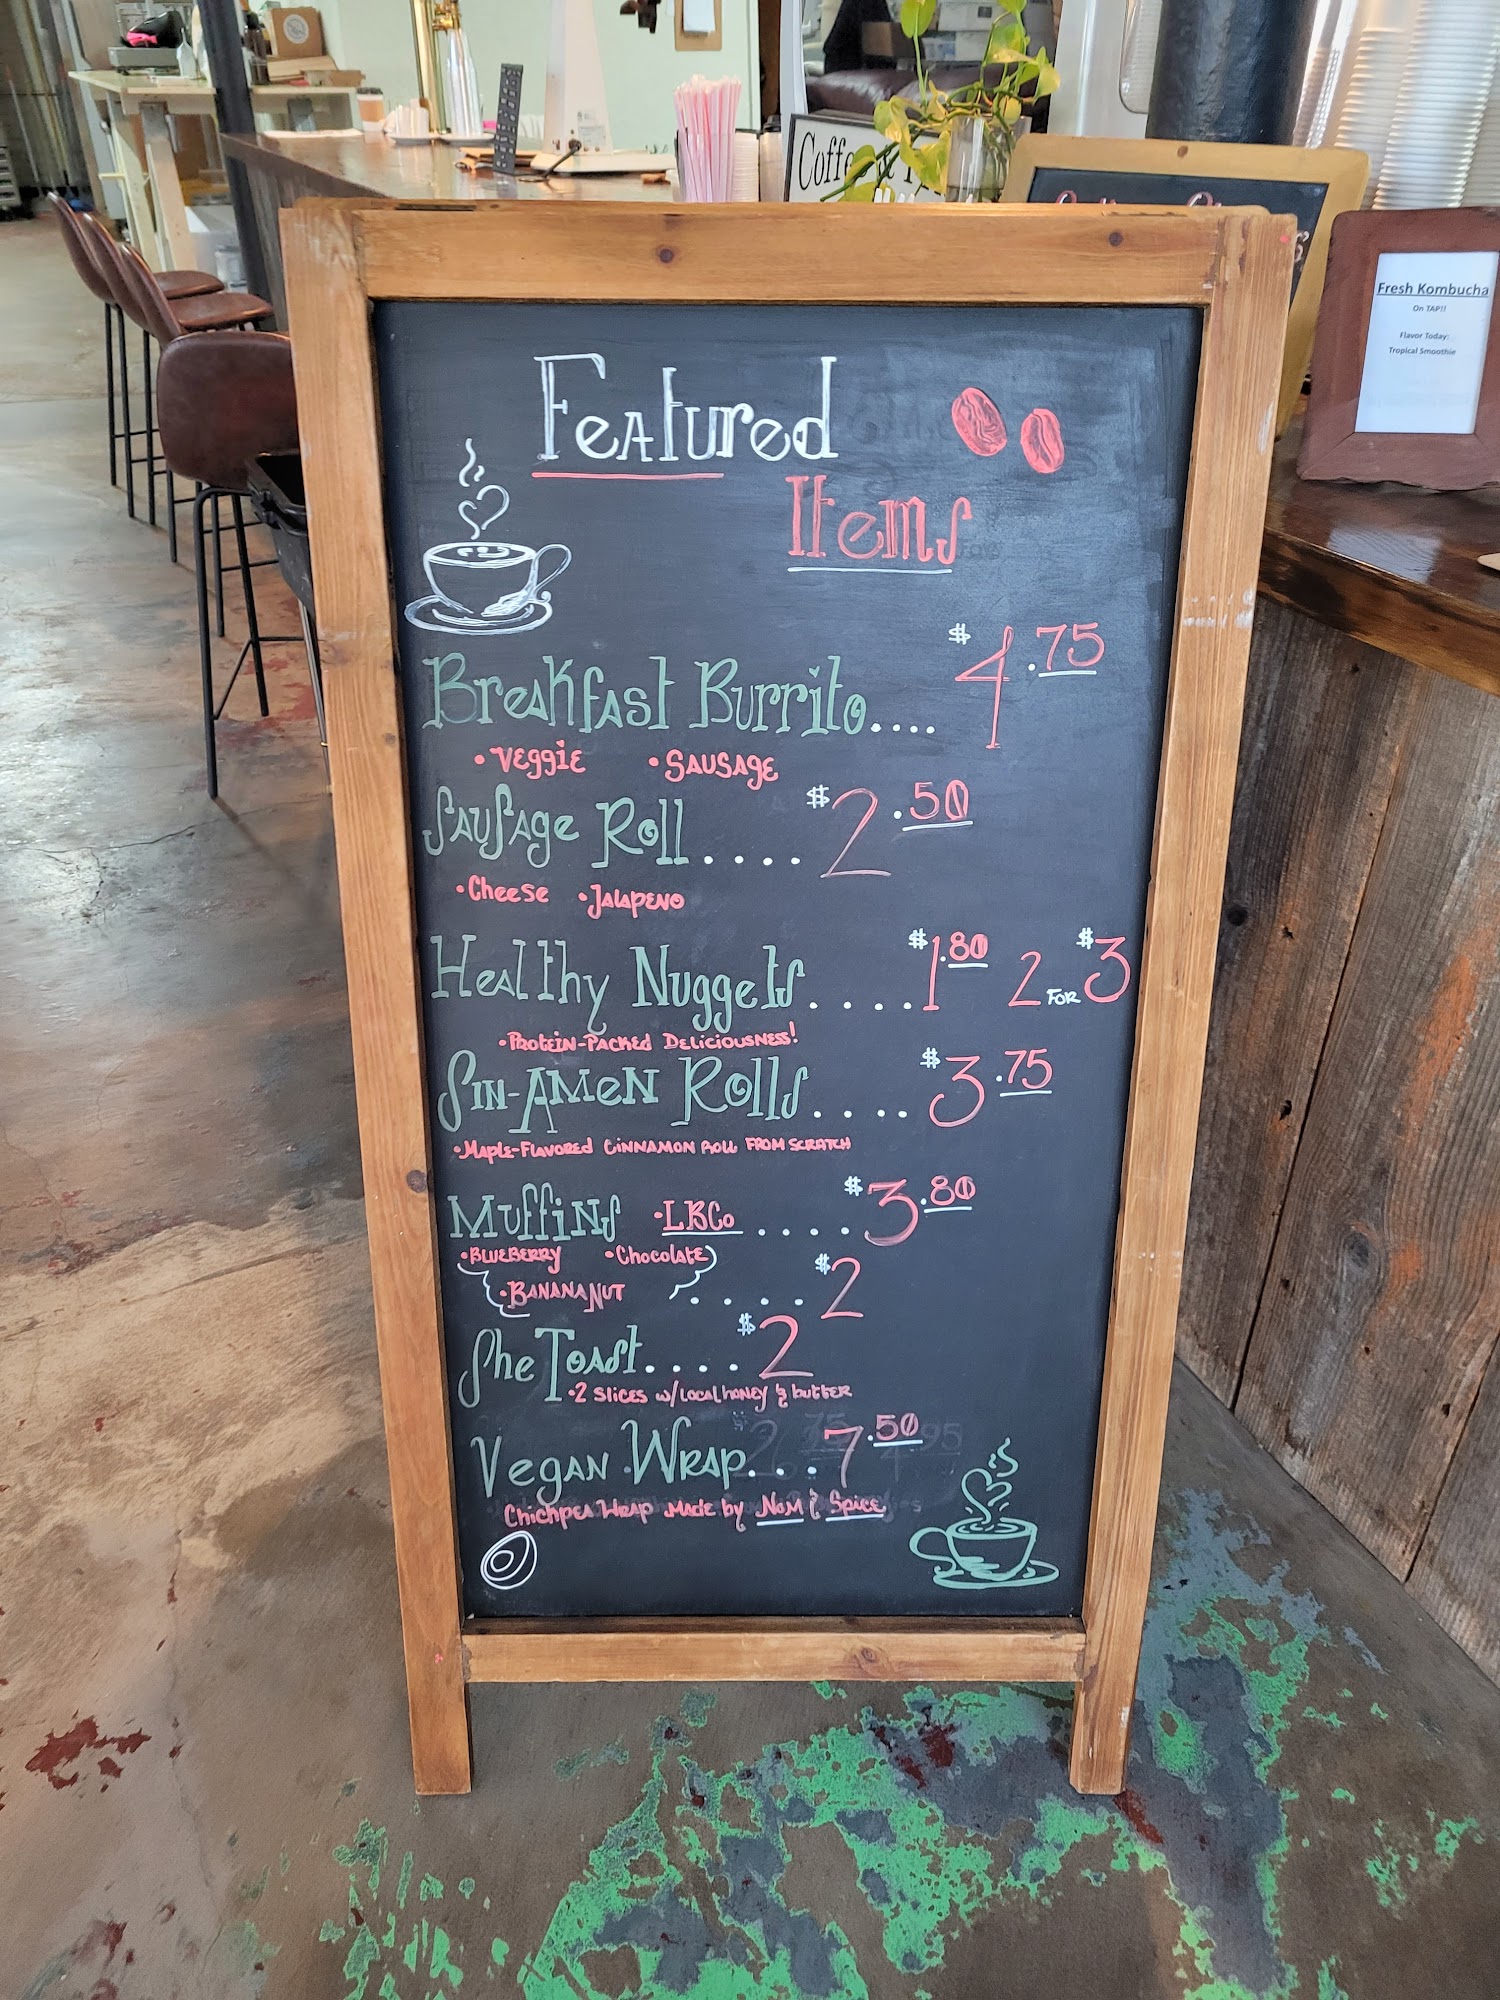 Coffee &
Fresh Kombucha
On TAP!!
Flavor Today:
Tropical Smoothie
Featured
Items
Breakfast Burrito.... $4.75
•Veggie •Sausage
Sausage Roll.... $2.50
•Cheese •Jalapeno
Healthy Nuggets....$1.80 2 FOR $3
•Protein-Packed Deliciousness!
Sin-Amen Rolls.... $3.75
•Maple-Flavored Cinnamon Roll From Scratch
Muffins •LBCo ....$3.80
•Blueberry •Chocolate
•Banana Nut ....$2
She Toast....$2
•2 Slices w/local honey & butter
Vegan Wrap...7.50
Chickpea Wrap Made by Nom & Spice